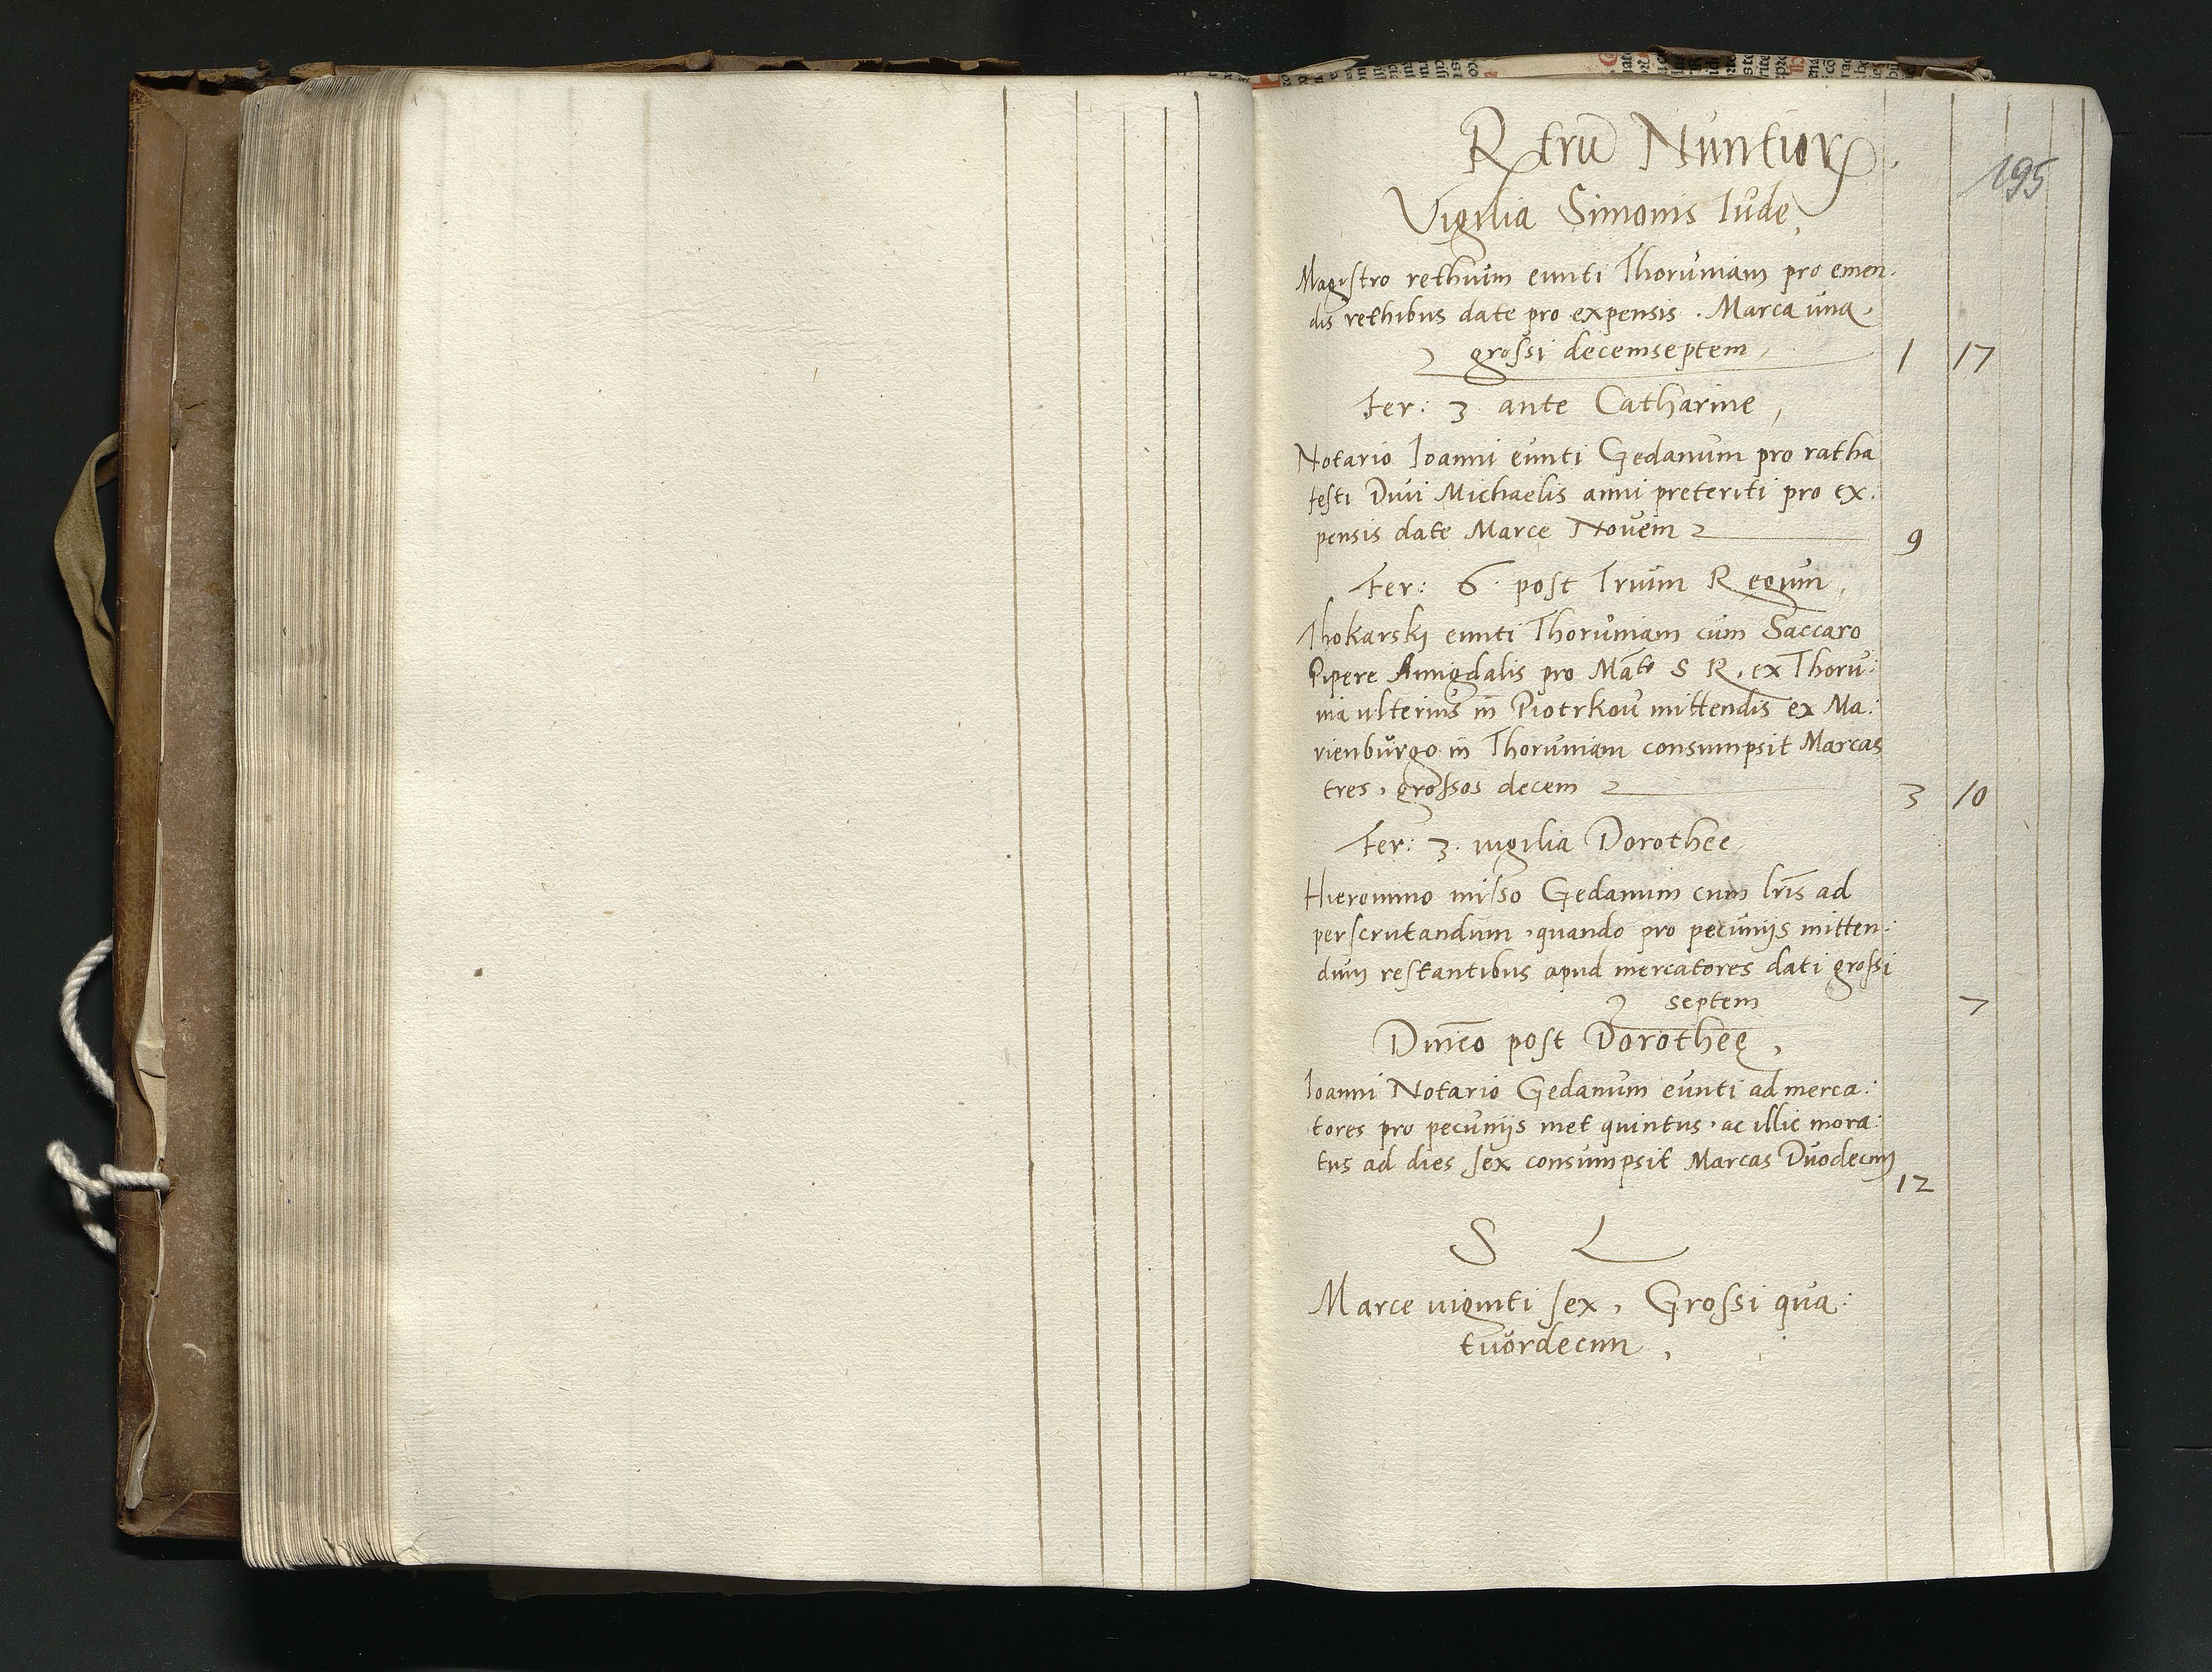 Rxtru Nuntior
195
Vigilia Simonis Iude,
Magistro rethium eunti Thoruniam pro emen.
dis rethibus date pro expensis. Marca una.
grossi decemseptem, 1 17
Fer: 3 ante Catharine,
Notario Ioanni eunti Gedanum pro ratha
festi Divi Michaelis anni preteriti pro ex:
pensis date Marce Novem 9
Fer: 6 post Trium Regum,
Thokarskj eunti Thoruniam cum Saccaro
Pipere Amigdalis pro Mate S R. ex Thoru:
nia ulterius in Piotrkow mittendis ex Ma:
rienburgo in Thoruniam consumpsit Marcas
tres, grossos decem 3 10
Fer: 3. vigilia Dorothee
Hieronimo misso Gedanum cum lris ad
perscrutandum, quando pro pecuniis mitten:
dum restantibus apud mercatores dati grossi
septem 7
Dnico post Dorothee,
Ioanni Notario Gedanum eunti ad merca:
tores pro pecuniis met quintus, ac illic mora:
tus ad dies sex consumpsit Marcas Duodecim
12
S L
Marce viginti sex, Grossi qua:
tuordecim,